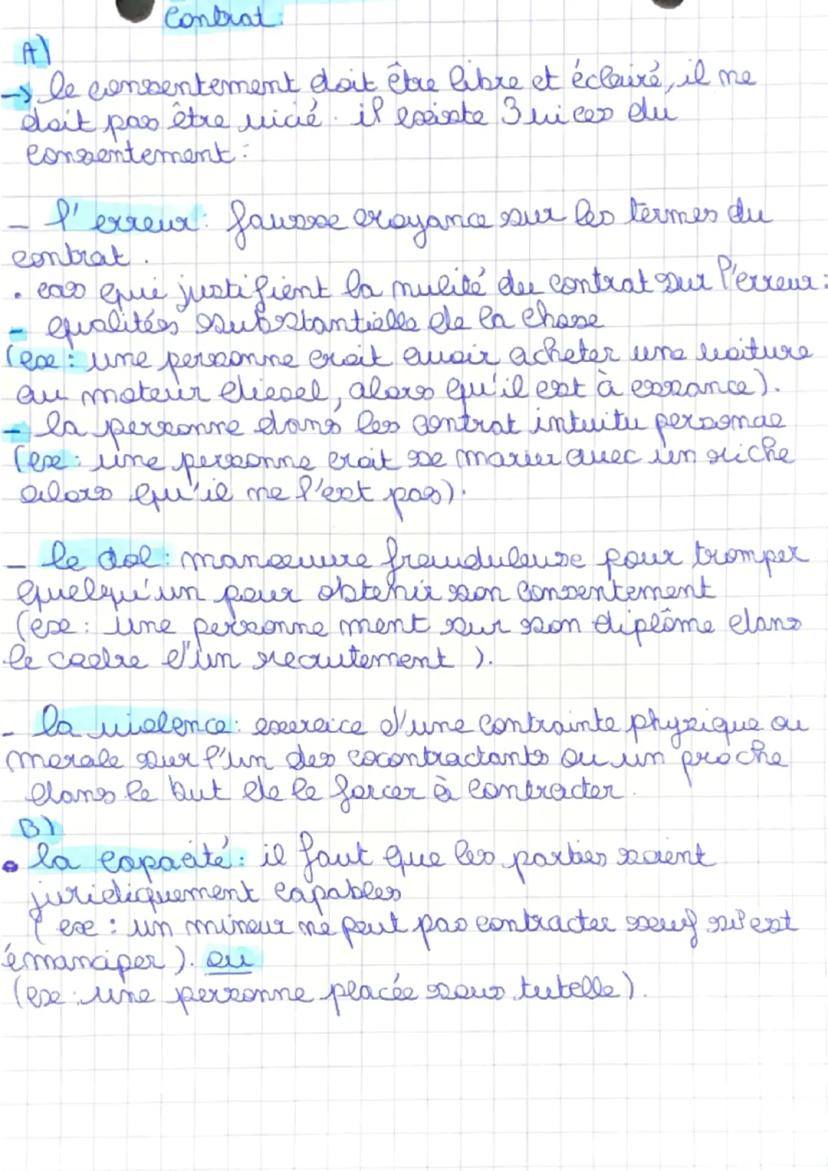 Contrat.
A)
→ le consentement doit être libre et éclairé, il ne
doit pas être vicié. il existe 3 vices du
consentement :
- l'erreur : fausse croyance sur les termes du
contrat.
• cas qui justifient la nullité du contrat sur l'erreur :
- qualités substantielle de la chose
(exe : une personne croit avoir acheter une voiture
au moteur diesel, alors qu'il est à essance).
- la personne dans les contrat intuitu personae
(exe : une personne croit se marier avec un riche
alors qu'il ne l'est pas).
- le dol : manoeuvre frauduleuse pour tromper
quelqu'un pour obtenir son consentement
(exe : une personne ment sur son diplôme dans
le cadre d'un recrutement ).
- la violence : exercice d'une contrainte physique ou
morale sur l'un des cocontractants ou un proche
dans le but de le forcer à contracter.
B)
• la capacité : il faut que les parties soient
juridiquement capables
( exe : un mineur ne peut pas contracter sauf s'il est
émanciper ). ou
(exe : une personne placée sous tutelle).